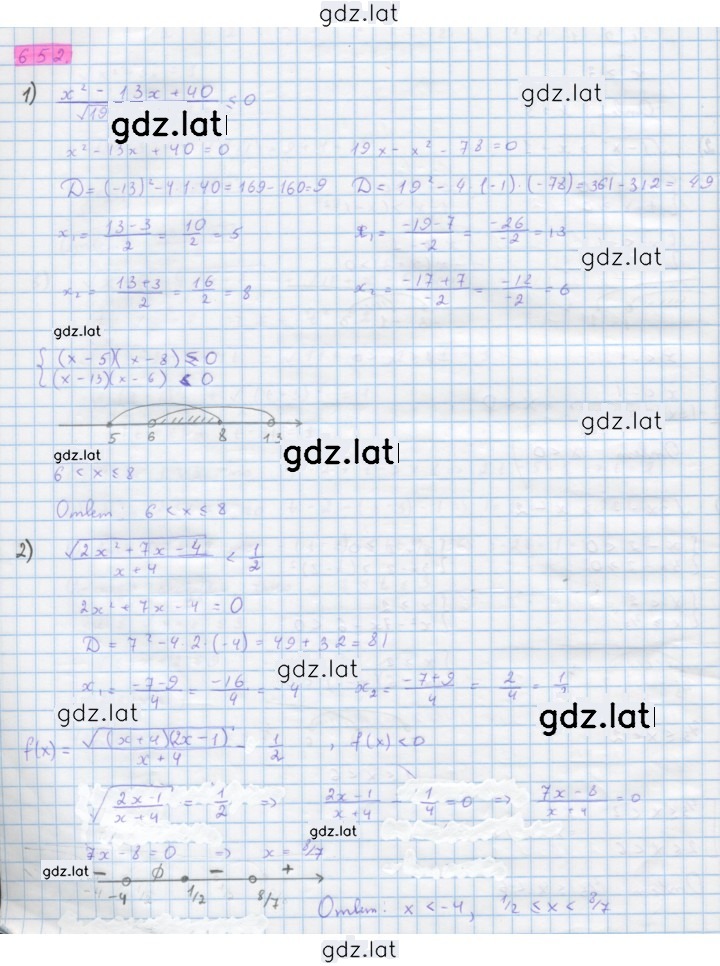 gdz.lat
652.
1) x² - 13x + 40 / √19 ≤ 0
gdz.lat
gdz.lat
x² - 13x + 40 = 0 19x - x² - 78 = 0
D = (-13)² - 4·1·40 = 169 - 160 = 9 D = 19² - 4·(-1)·(-78) = 361 - 312 = 49
x₁ = 13-3/2 = 10/2 = 5 x₁ = -19-7/-2 = -26/-2 = 13
gdz.lat
x₂ = 13+3/2 = 16/2 = 8 x₂ = -17+7/-2 = -12/-2 = 6
gdz.lat
{ (x - 5)(x - 8) ≤ 0
(x - 13)(x - 6) < 0
gdz.lat
5 6 8 13
gdz.lat
gdz.lat
6 < x ≤ 8
Ответ: 6 < x ≤ 8
2) √2x² + 7x - 4 / x + 4 < 1/2
2x² + 7x - 4 = 0
D = 7² - 4·2·(-4) = 49 + 32 = 81
gdz.lat
x₁ = -7-9/4 = -16/4 = -4 x₂ = -7+9/4 = 2/4 = 1/2
gdz.lat
gdz.lat
f(x) = √(x+4)(2x-1) / x+4 - 1/2 , f(x) < 0
√2x-1/x+4 = 1/2 ⇒ 2x-1/x+4 - 1/4 = 0 ⇒ 7x-8/x+4 = 0
gdz.lat
7x - 8 = 0 ⇒ x = 8/7
gdz.lat
- ϕ - +
-4 1/2 8/7
Ответ: x < -4, 1/2 ≤ x < 8/7
gdz.lat